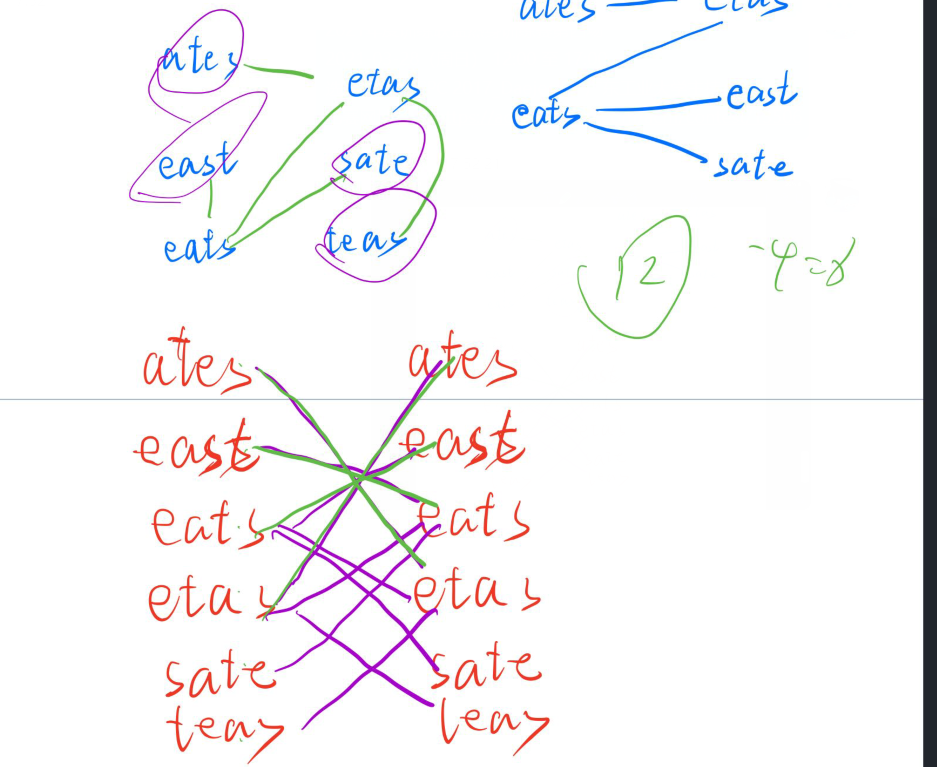 ates etas
ates
etas
eats east
east sate
sate
eats teas
12 -4=8
ates ates
east east
eats eats
etas etas
sate sate
teas teas